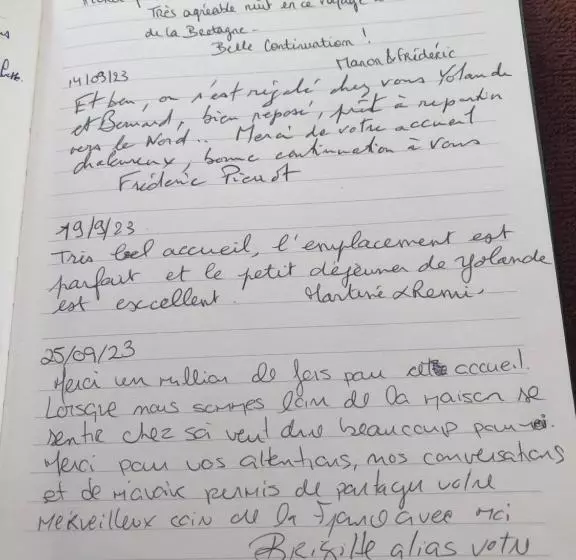 Très agréable nuit en ce voyage
de la Bretagne.
Belle Continuation !
Manon & Frédéric
14/09/23
Et ben, on s'est régalé chez vous Yolande
et Bernard, bien reposé, prêt à repartir
vers le Nord.. Merci de votre accueil
chaleureux, bonne continuation à vous
Frédéric
19/9/23
Très bel accueil, l'emplacement est
parfait et le petit déjeuner de Yolande
est excellent. Martine & Remi.
25/09/23
Merci un million de fois pour accueil.
Lorsque nous sommes loin de la maison se
sentir chez soi veut dire beaucoup pour moi.
Merci pour vos attentions, nos conversations
et de m'avoir permis de partager votre
merveilleux coin de la France avec moi
alias votre